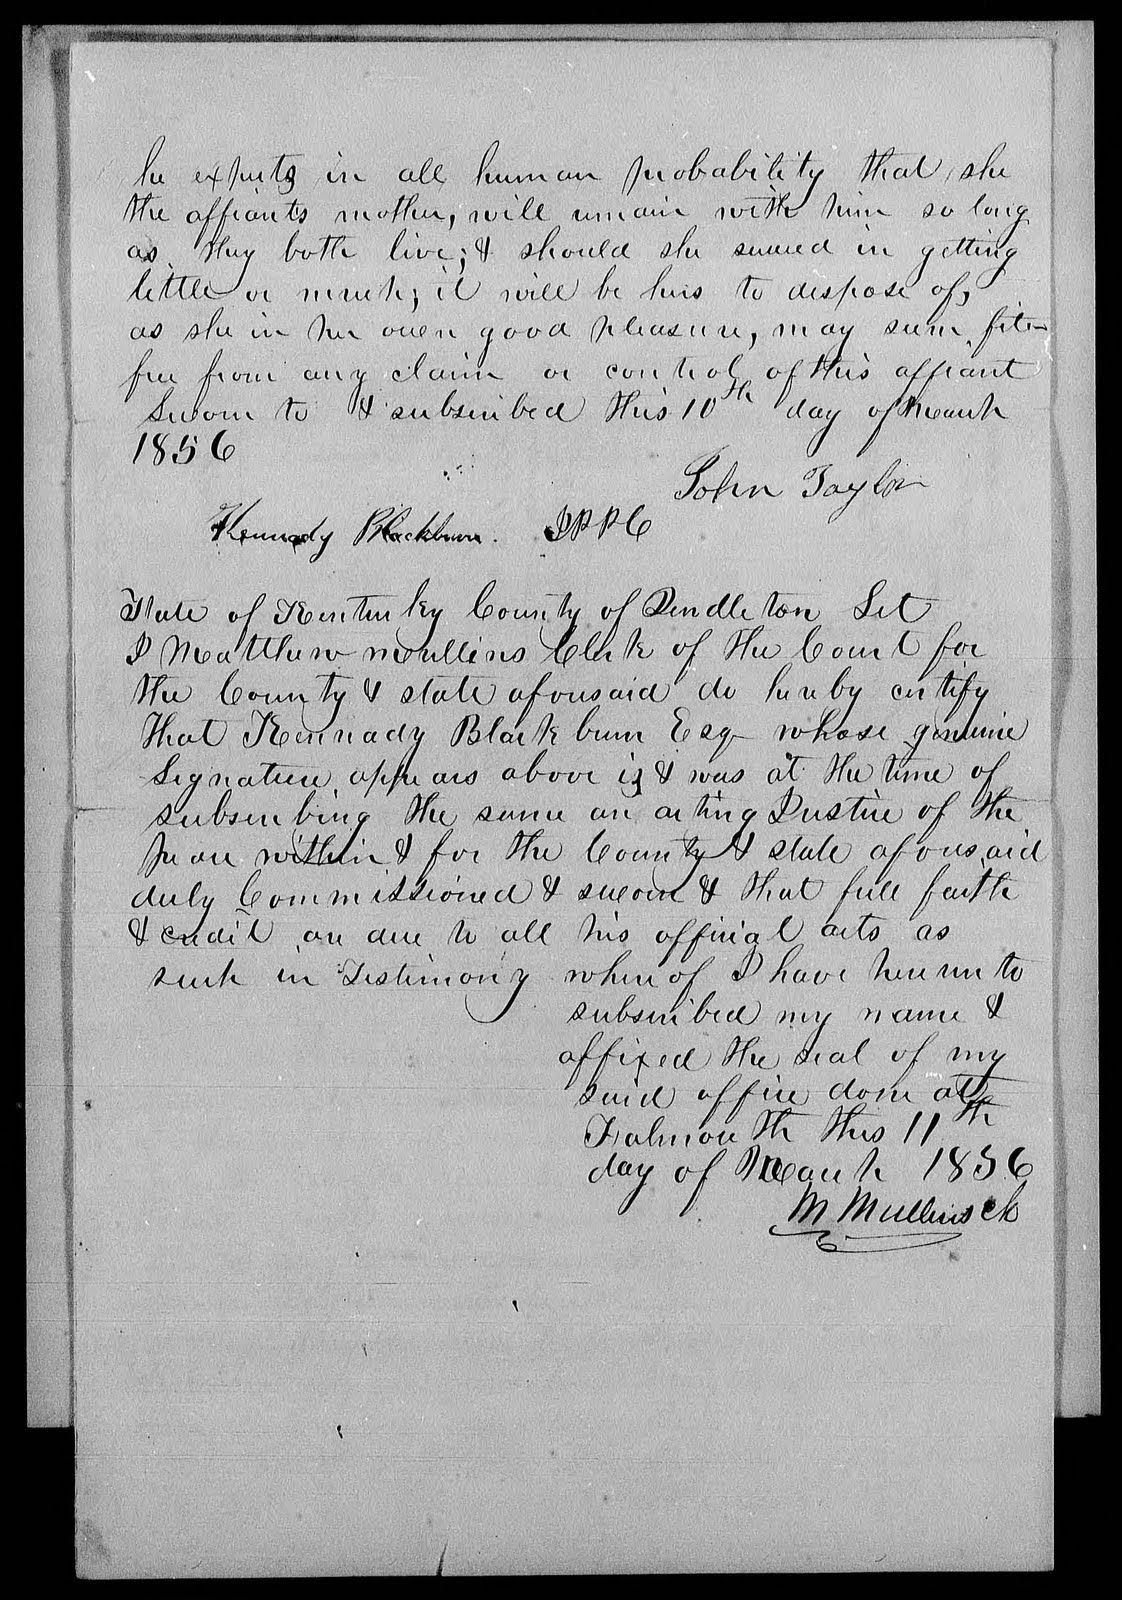 he expects in all human probability that she
the affiants mother, will remain with him so long
as they both live; & should she succeed in getting
little or much; it will be hers to dispose of,
as she in her own good pleasure, may seem fit
free from any claim or control of this affiant
Sworn to & subscribed this 10th day of March
1856
John Taylor
Kennady Blackburn. JPPC
State of Kentucky County of Pendleton Sct
I Matthew Mullins Clerk of the Court for
the County & state aforesaid do hereby certify
that Kennady Blackburn Esq whose genuine
Signature appears above is & was at the time of
subscribing the same an acting Justice of the
peace within & for the County & state aforesaid
duly Commissioned & sworn & that full faith
& credit are due to all his official acts as
such in Testimony whereof I have hereunto
subscribed my name &
affixed the seal of my
said office done at
Falmouth this 11th
day of March 1856
M Mullins clk